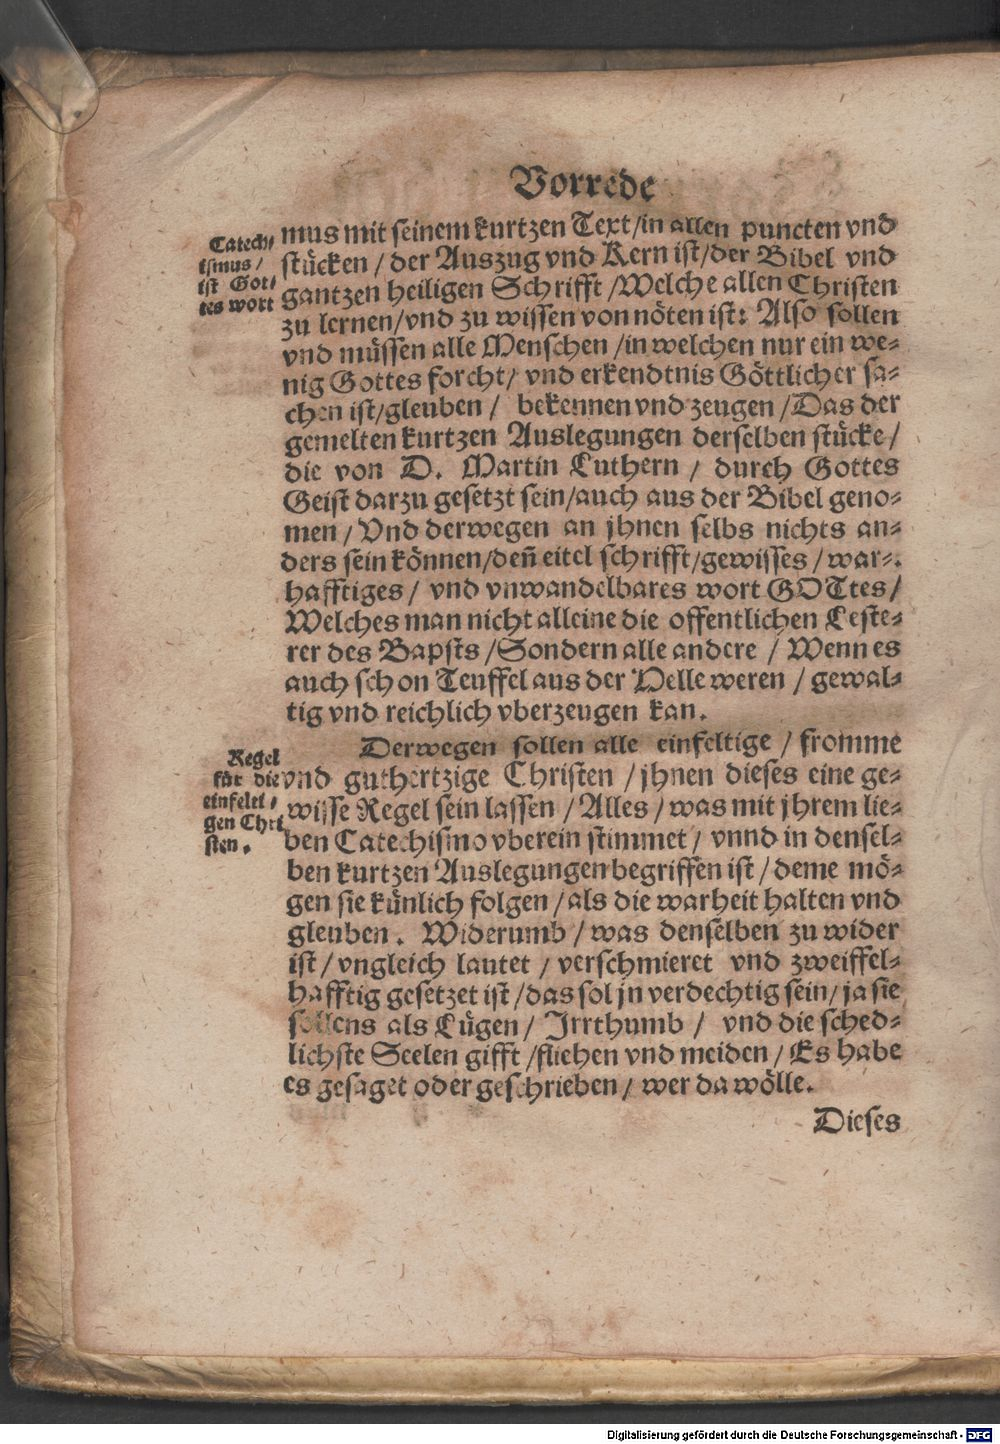 Vorrede
Catech/
ismus /
ist Got/
tes wort
mus mit seinem kurtzen Text/in allen puncten vnd
stücken / der Auszug vnd Kern ist/der Bibel vnd
gantzen heiligen Schrifft /Welche allen Christen
zu lernen/vnd zu wissen von nöten ist: Also sollen
vnd müssen alle Menschen /in welchen nur ein we-
nig Gottes forcht/ vnd erkendtnis Göttlicher sa-
chen ist/gleuben / bekennen vnd zeugen /Das der
gemelten kurtzen Auslegungen derselben stücke/
die von D. Martin Luthern / durch Gottes
Geist darzu gesetzt sein/auch aus der Bibel geno-
men / Vnd derwegen an jhnen selbs nichts an-
ders sein können/deñ eitel schrifft/gewisses / war-
hafftiges / vnd vnwandelbares wort GOTtes/
Welches man nicht alleine die offentlichen Leste-
rer des Bapsts /Sondern alle andere / Wenn es
auch schon Teuffel aus der Helle weren / gewal-
tig vnd reichlich vberzeugen kan.
Regel
für die
einfelti /
gen Chri
sten.
Derwegen sollen alle einfeltige / fromme
vnd guthertzige Christen / jhnen dieses eine ge-
wisse Regel sein lassen / Alles / was mit jhrem lie-
ben Catechismo vberein stimmet / vnnd in densel-
ben kurtzen Auslegungen begriffen ist / deme mö-
gen sie künlich folgen /als die warheit halten vnd
gleuben. Widerumb / was denselben zu wider
ist / vngleich lautet / verschmieret vnd zweiffel-
hafftig gesetzet ist /das sol jn verdechtig sein/ ja sie
sollens als Lügen / Irrthumb / vnd die sched-
lichste Seelen gifft /fliehen vnd meiden / Es habe
es gesaget oder geschrieben / wer da wölle.
Dieses
Digitalisierung gefördert durch die Deutsche Forschungsgemeinschaft - DFG